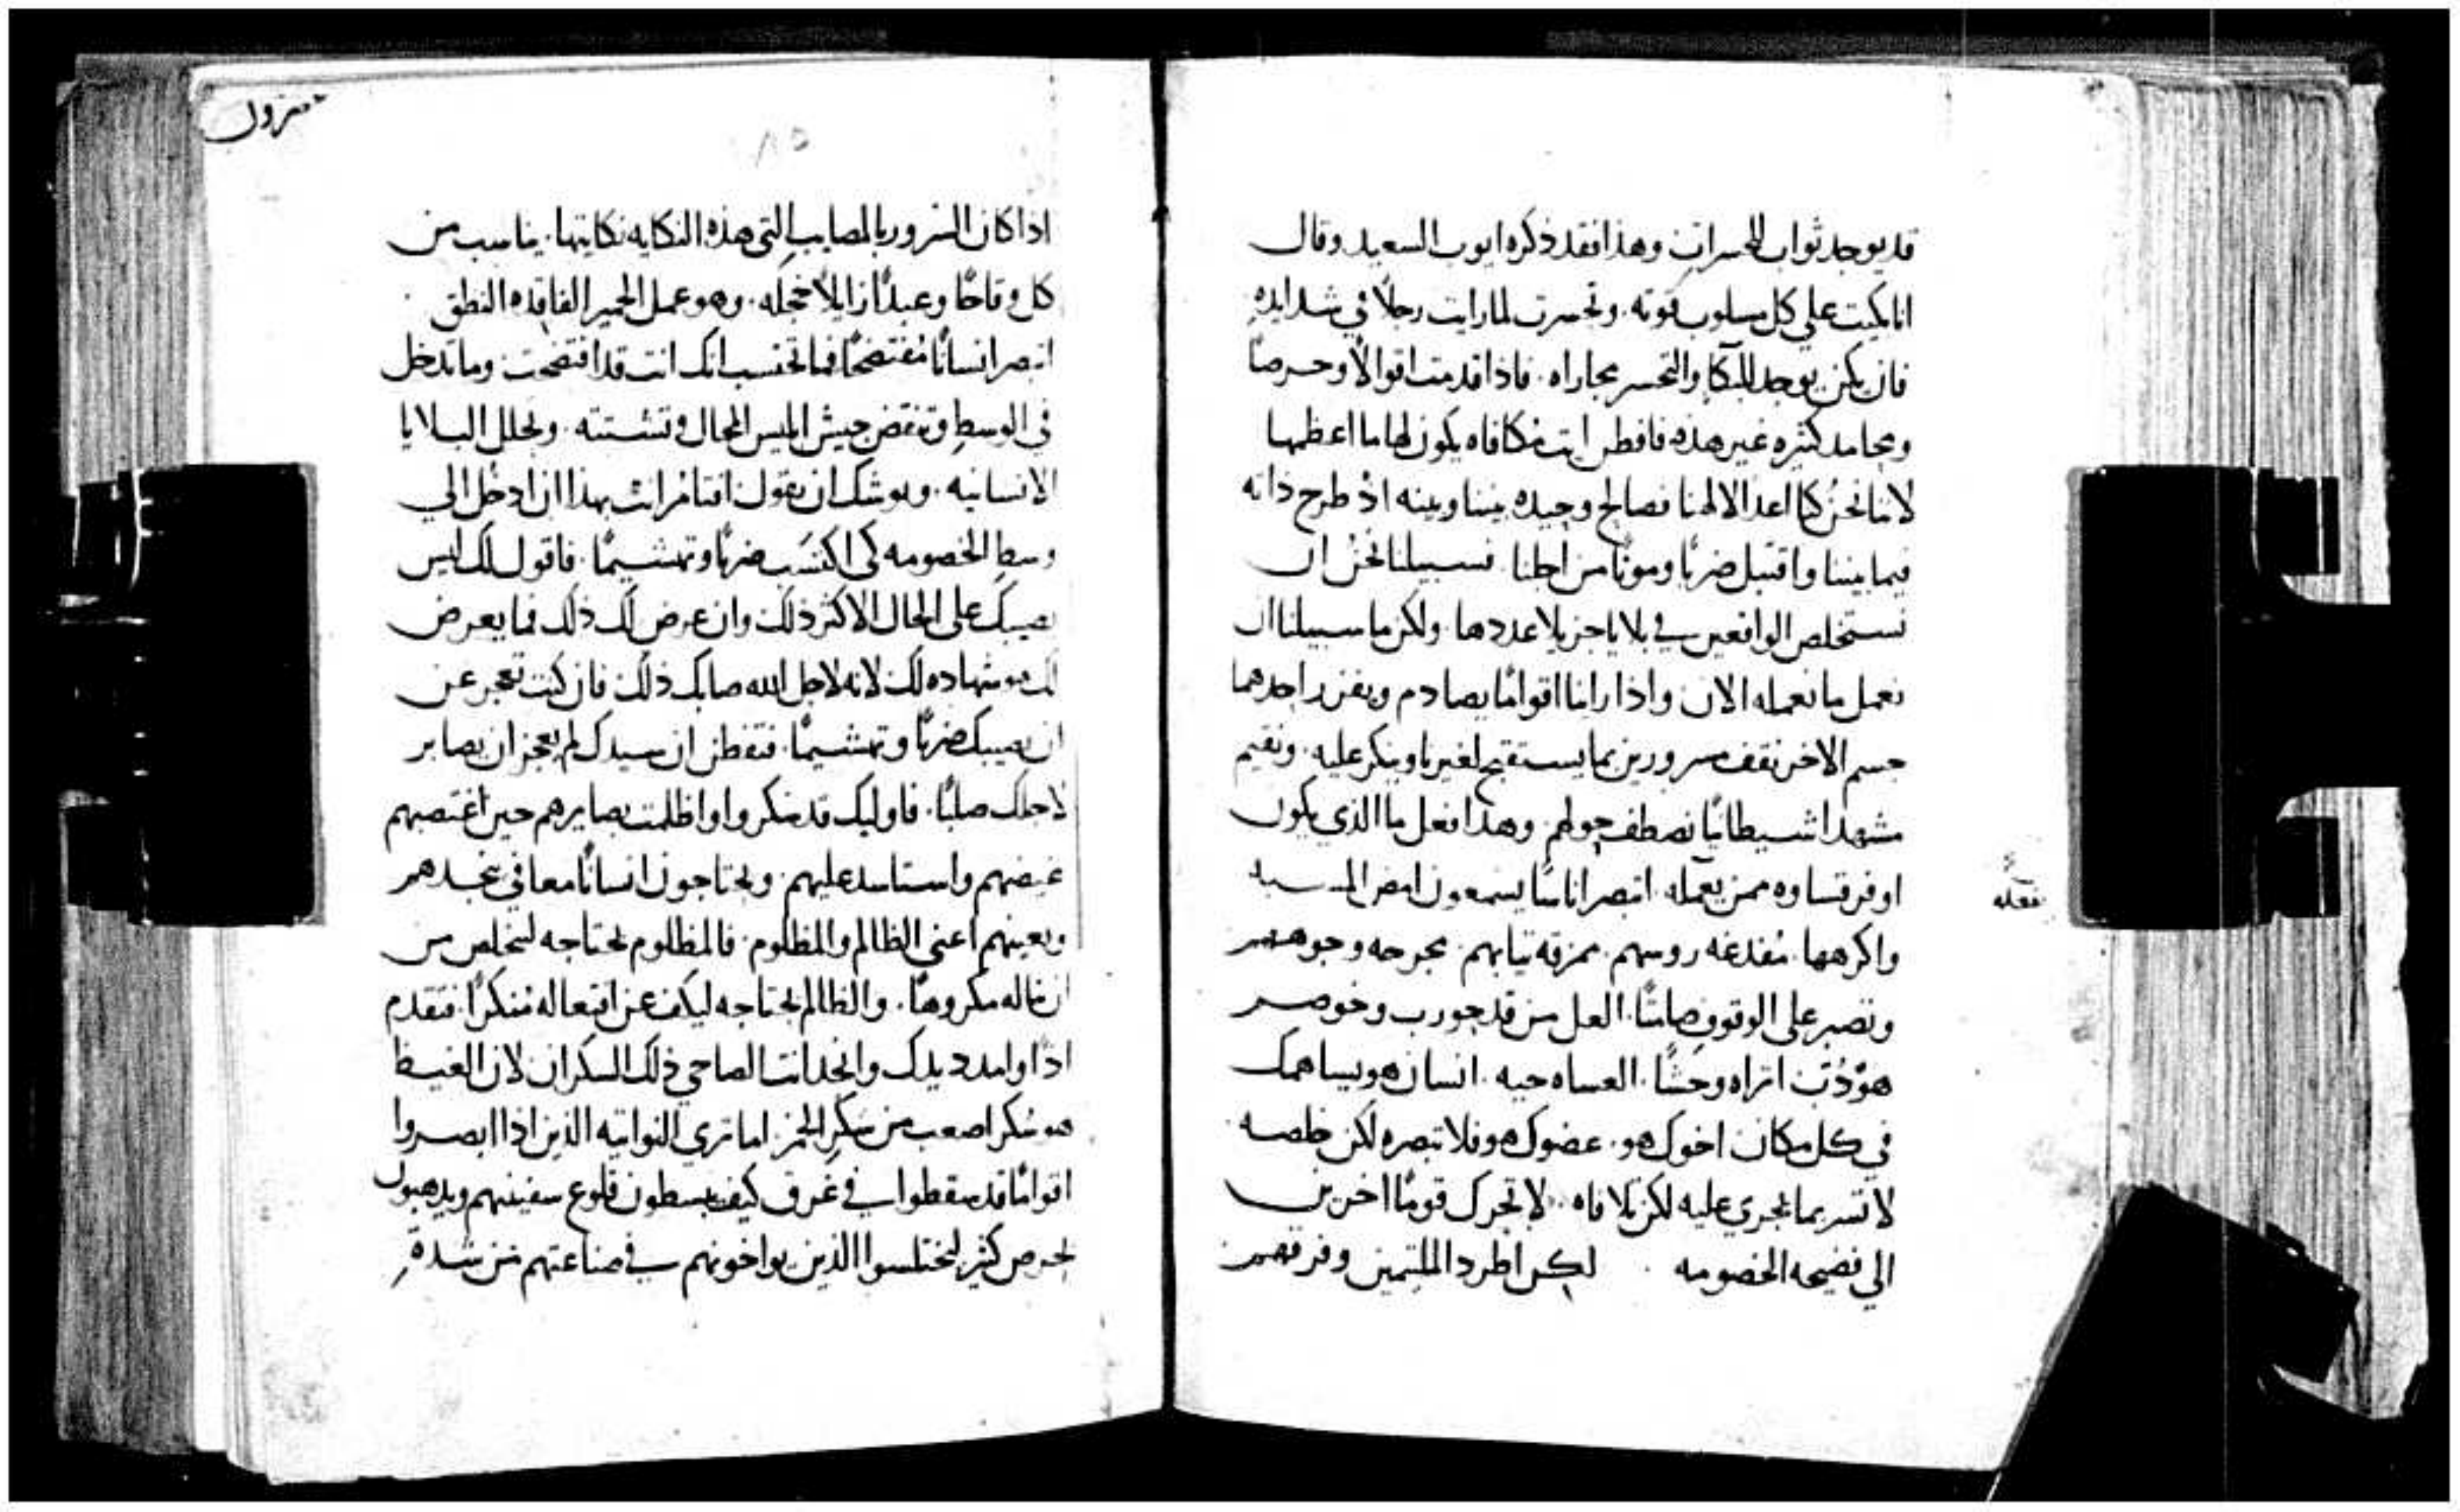 قد يوجد ثواب للحسرات وهذا فقد ذكره ايوب السعيد وقال
انا بكيت على كل مسلوب قوته. وتحسرت لما رايت رجلاً في شدايده
فان يكن يوجد للبكا والتحسر مجاراه. فاذا قدمت اقوالاً وحرصاً
ومحامد كثيره غير هذه فافطن ايت مكافاه يكون لها ما اعظمها
لاننا نحن كنا اعدا لالهنا فصالح وحيده بيننا وبينه اذ طرح ذاته
فيما بيننا واقتبل ضرباً وموتاً من اجلنا فسبيلنا نحن ان
نستخلص الواقعين في بلايا جزيلا عددها. ولكن ما سبيلنا ان
نعمل ما نعمله الان واذا راينا اقواماً يصادم ويفزر احدهما
جسم الاخر نقف مسرورين بما يستقبح لغيرنا وينكر عليه. ونقيم
مشهداً شيطانياً نصطف حولهم. وهذا فعل ما الذي يكون
اوفر قساوه ممن يعمله. اتبصر اناساً يسمعون امض المسبه
فعله
واكرهها. مفدغه روسهم. ممزقه تيابهم. مجرحه وجوههم
وتصبر على الوقوف صامتاً. العل من قد جورب وخوصم
هو دُبّ اتراه وحشاً. العساه حيه. انسان هو يساهمك
في كل مكان اخوك هو. عضوك هو فلا تبصره لكن خلصه
لا تسر بما يجري عليه لكن تلافاه. لا تحرك قوماً اخرين
الي فضيحه الخصومه . لكن اطرد الملتمين وفرقهم
منزول
٨٥
اذا كان السرور بالمصايب التي هذه النكايه نكايتها. يناسب من
كان وقاحاً وعبداً زايلاً خجله. وهو عمل الحمير الفاقده النطق
اتبصر انساناً مُفتضحاً فما تحتسب انك انت قد افتضحت وما تدخل
في الوسط وتنقض جيش ابليس المحال وتشتته. وتحلل البلايا
الانسانيه. ويوشك ان يقول افتامر انت بهذا ان ادخل الي
وسط الخصومه كي اكتسب ضرباً وتهشيماً. فاقول لك ليس
يصيبك على الحال الاكثر ذلك وان عرض لك ذلك فما يعرض
لك هو شهاده لك لانه لاجل الله صابك ذلك فان كنت تعجز عن
ان يصيبك ضرباً وتهشيماً. فتفطن ان سيدك لم يعجز ان يصابر
لاجلك صلباً. فاوليك قد سكروا واظلمت بصايرهم حين اغتصبهم
غيضهم واستاسد عليهم. ويحتاجون انساناً معافي ينجدهم
ويعينهم اعني الظالم والمظلوم. فالمظلوم يحتاجه ليخلص من
ان يناله مكروهاً. والظالم يحتاجه ليكف عن افتعاله مُنكراً. فتقدم
اذاً وامدد يديك وانجد انت الصاحي ذلك السكران لان الغيظ
هو سُكر اصعب من سُكر الخمر. اما تري النواتيه الذين اذا ابصروا
اقواماً قد سقطوا في غرق كيف يبسطون قلوع سفينتهم ويذهبون
بحرص كثير ليختلسوا الذين يواخونهم في صناعتهم من شدةِ